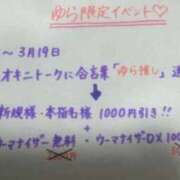 ゆら限定イベント♡
～3月19日
オキニトークに合言葉「ゆら推し」送
↓
新規様・本指名様 1000円引き!!
+
ウーマナイザー無料 ウーマナイザーDX 100